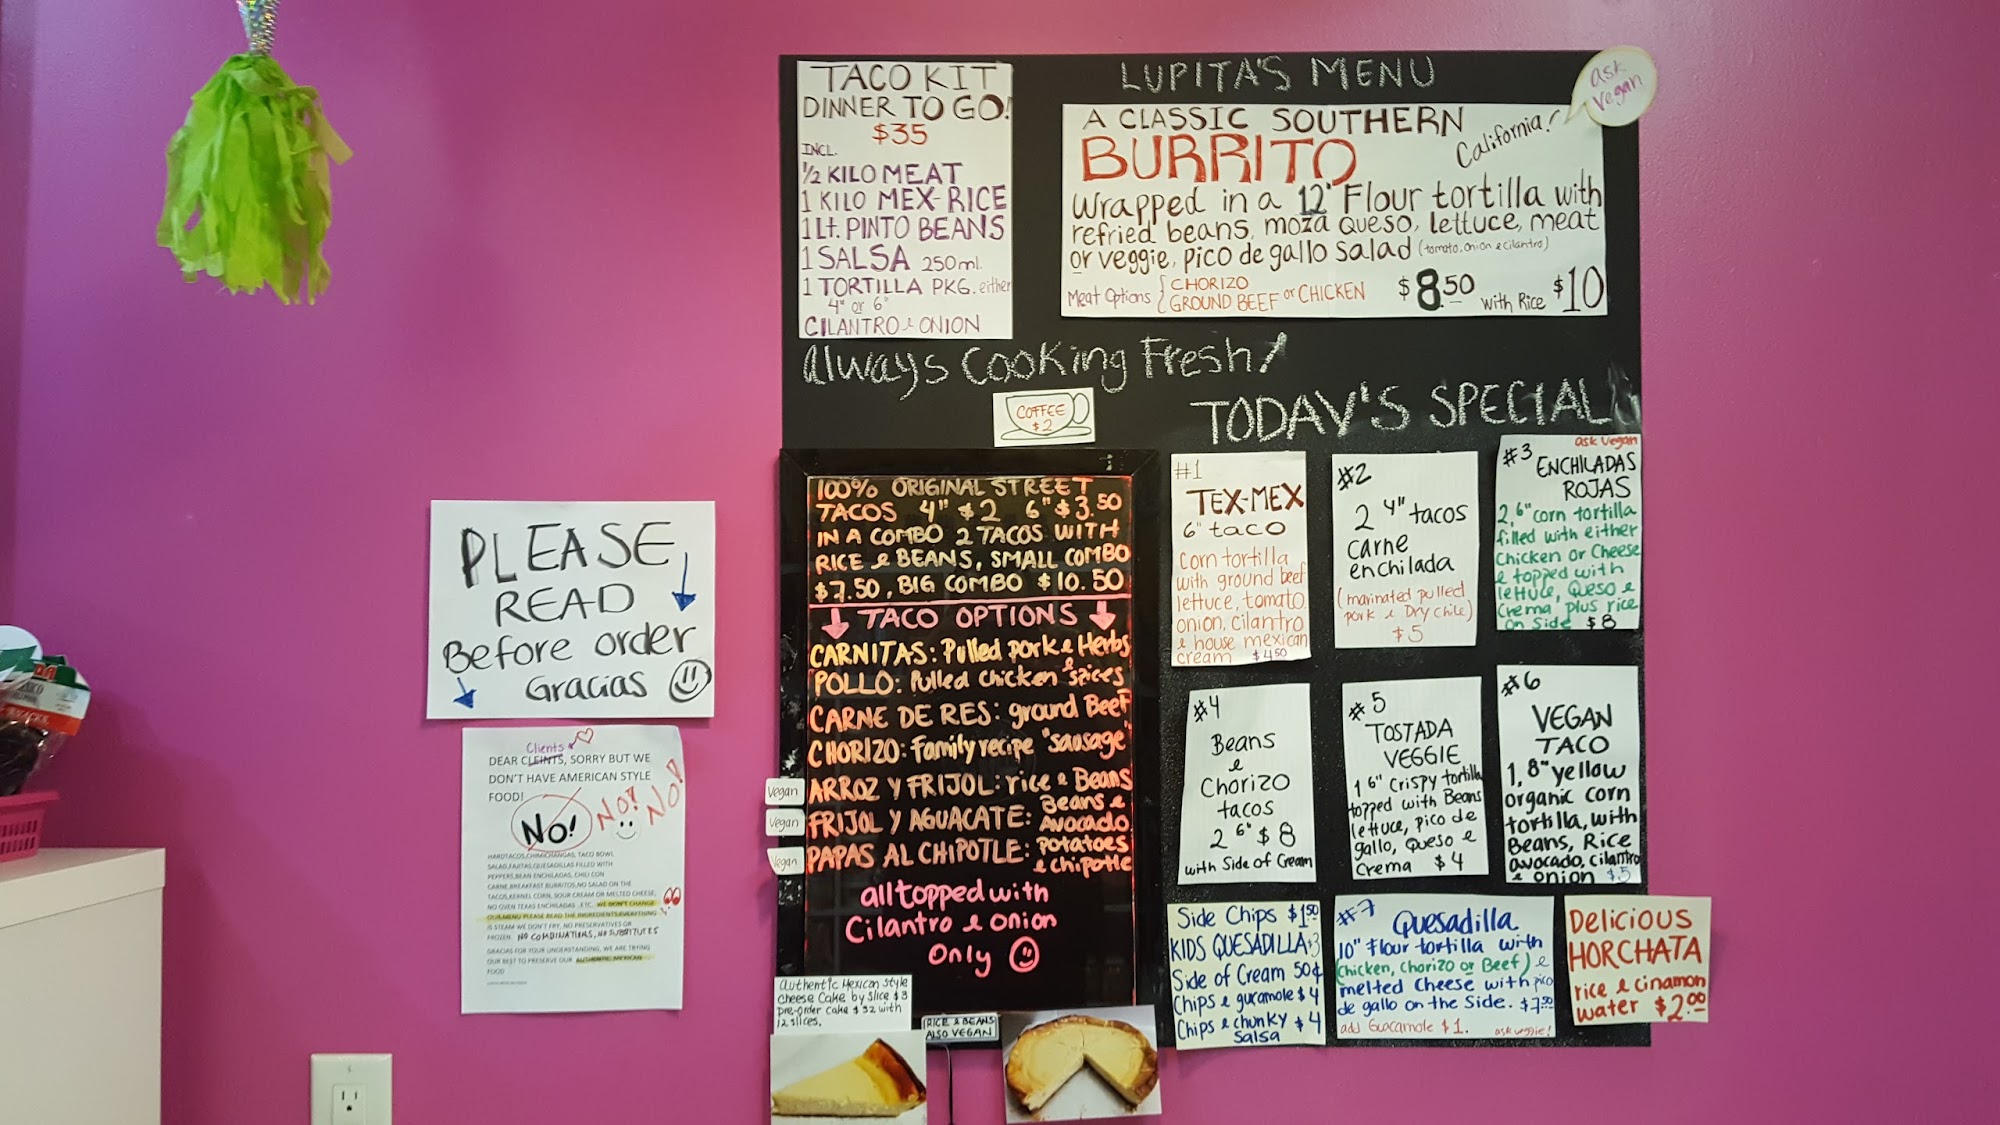 LUPITA'S MENU
TACO KIT
DINNER TO GO!
$35
INCL.
1/2 KILO MEAT
1 KILO MEX-RICE
1 Lt. PINTO BEANS
1 SALSA 250ml.
1 TORTILLA PKG. either
4" or 6"
CILANTRO & ONION
ask
Vegan
A CLASSIC SOUTHERN
California!
BURRITO
Wrapped in a 12" Flour tortilla with
refried beans, moza queso, lettuce, meat
or veggie, pico de gallo salad (tomato, onion & cilantro)
Meat Options { CHORIZO
GROUND BEEF or CHICKEN
$8.50 with Rice $10
Always Cooking Fresh!
COFFEE
$2
TODAY'S SPECIAL
100% ORIGINAL STREET
TACOS 4" $2 6" $3.50
IN A COMBO 2 TACOS WITH
RICE & BEANS, SMALL COMBO
$7.50, BIG COMBO $10.50
TACO OPTIONS
CARNITAS: Pulled pork & Herbs
POLLO: Pulled chicken & spices
CARNE DE RES: ground Beef
CHORIZO: Family recipe "sausage"
Vegan ARROZ Y FRIJOL: rice & Beans
Vegan FRIJOL Y AGUACATE: Beans & Avocado
Vegan PAPAS AL CHIPOTLE: potatoes & chipotle
all topped with
Cilantro & onion
only
#1
TEX-MEX
6" taco
Corn tortilla
with ground beef
lettuce, tomato,
onion, cilantro
& house mexican
cream $4.50
#2
2 4" tacos
carne
enchilada
(marinated pulled
pork & Dry chile)
$5
ask vegan
#3 ENCHILADAS
ROJAS
2, 6" corn tortilla
filled with either
Chicken or Cheese
& topped with
lettuce, Queso &
Crema plus rice
on Side $8
#4
Beans
&
Chorizo
tacos
2 6" $8
with Side of Cream
#5
TOSTADA
VEGGIE
1 6" Crispy tortilla
topped with Beans
lettuce, pico de
gallo, Queso &
Crema $4
#6
VEGAN
TACO
1, 8" yellow
organic corn
tortilla, with
Beans, Rice
avocado, cilantro
& onion $5
Side Chips $1.50
KIDS QUESADILLA $3
Side of Cream 50¢
Chips & guacamole $4
Chips & chunky $4
Salsa
#7 Quesadilla
10" Flour tortilla with
(chicken, Chorizo or Beef) &
melted Cheese with pico
de gallo on the Side. $7.50
add Guacamole $1. ask veggie!
DELICIOUS
HORCHATA
rice & cinamon
water $2.00
Authentic Mexican Style
Cheese Cake by slice $3
pre-order cake $32 with
12 slices.
RICE & BEANS
ALSO VEGAN
PLEASE
READ
Before order
Gracias
Clients
DEAR CLEINTS, SORRY BUT WE
DON'T HAVE AMERICAN STYLE
FOOD!
NO! NO! NO!
HARDTACOS,CHIMICHANGAS, TACO BOWL
SALAD,FAJITAS,QUESADILLAS FILLED WITH
PEPPERS,BEAN ENCHILADAS, CHILI CON
CARNE,BREAKFAST BURRITOS,NO SALAD ON THE
TACOS,KERNEL CORN, SOUR CREAM OR MELTED CHEESE,
NO OVEN TEXAS ENCHILADAS .ETC. WE DON'T CHANGE
OUR MENU PLEASE READ THE INGREDIENTS,EVERYTHING
IS STEAM WE DON'T FRY, NO PRESERVATIVES OR
FROZEN. NO COMBINATIONS, NO SUBSTITUTES
GRACIAS FOR YOUR UNDERSTANDING, WE ARE TRYING
OUR BEST TO PRESERVE OUR AUTHENTIC MEXICAN
FOOD